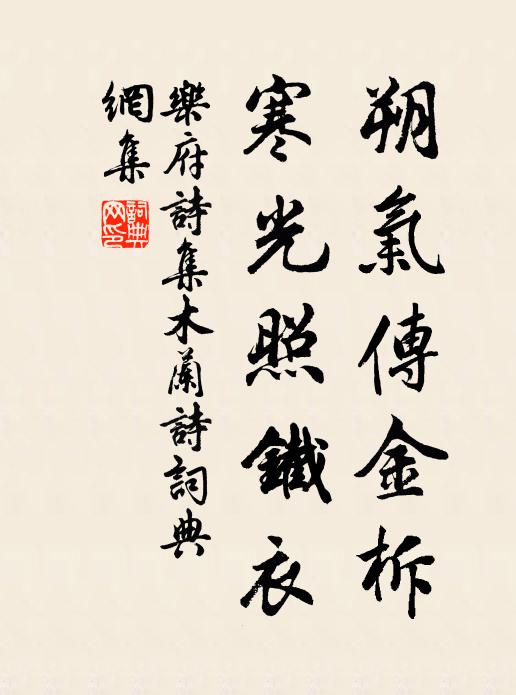 朔氣傳金柝
寒光照鐵衣
樂府詩集木蘭詩詞典
網集
詞典
网印